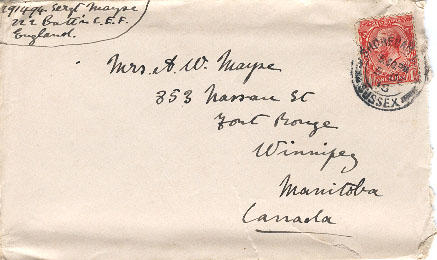 291494 Sergt Mayse
222 Battn C.E.F.
England.
Mrs. A. W. Mayse
353 Nassau St
Fort Rouge
Winnipeg
Manitoba
Canada
SUSSEX